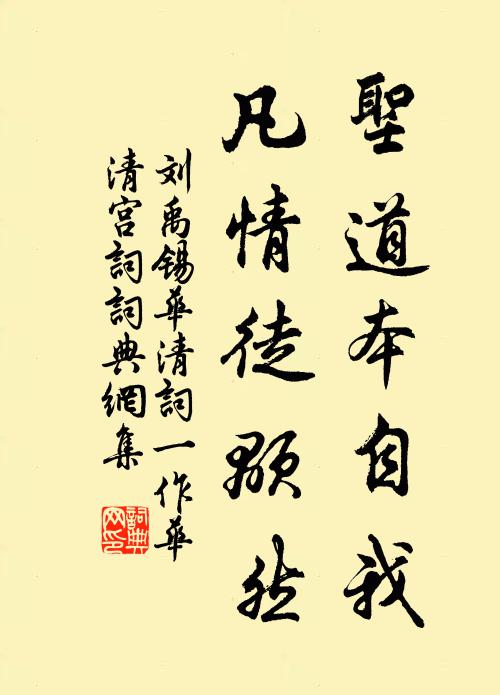 聖道本自我
凡情徒顒然
刘禹锡華清詞一作華
清宫詞詞典網集
詞典
网印